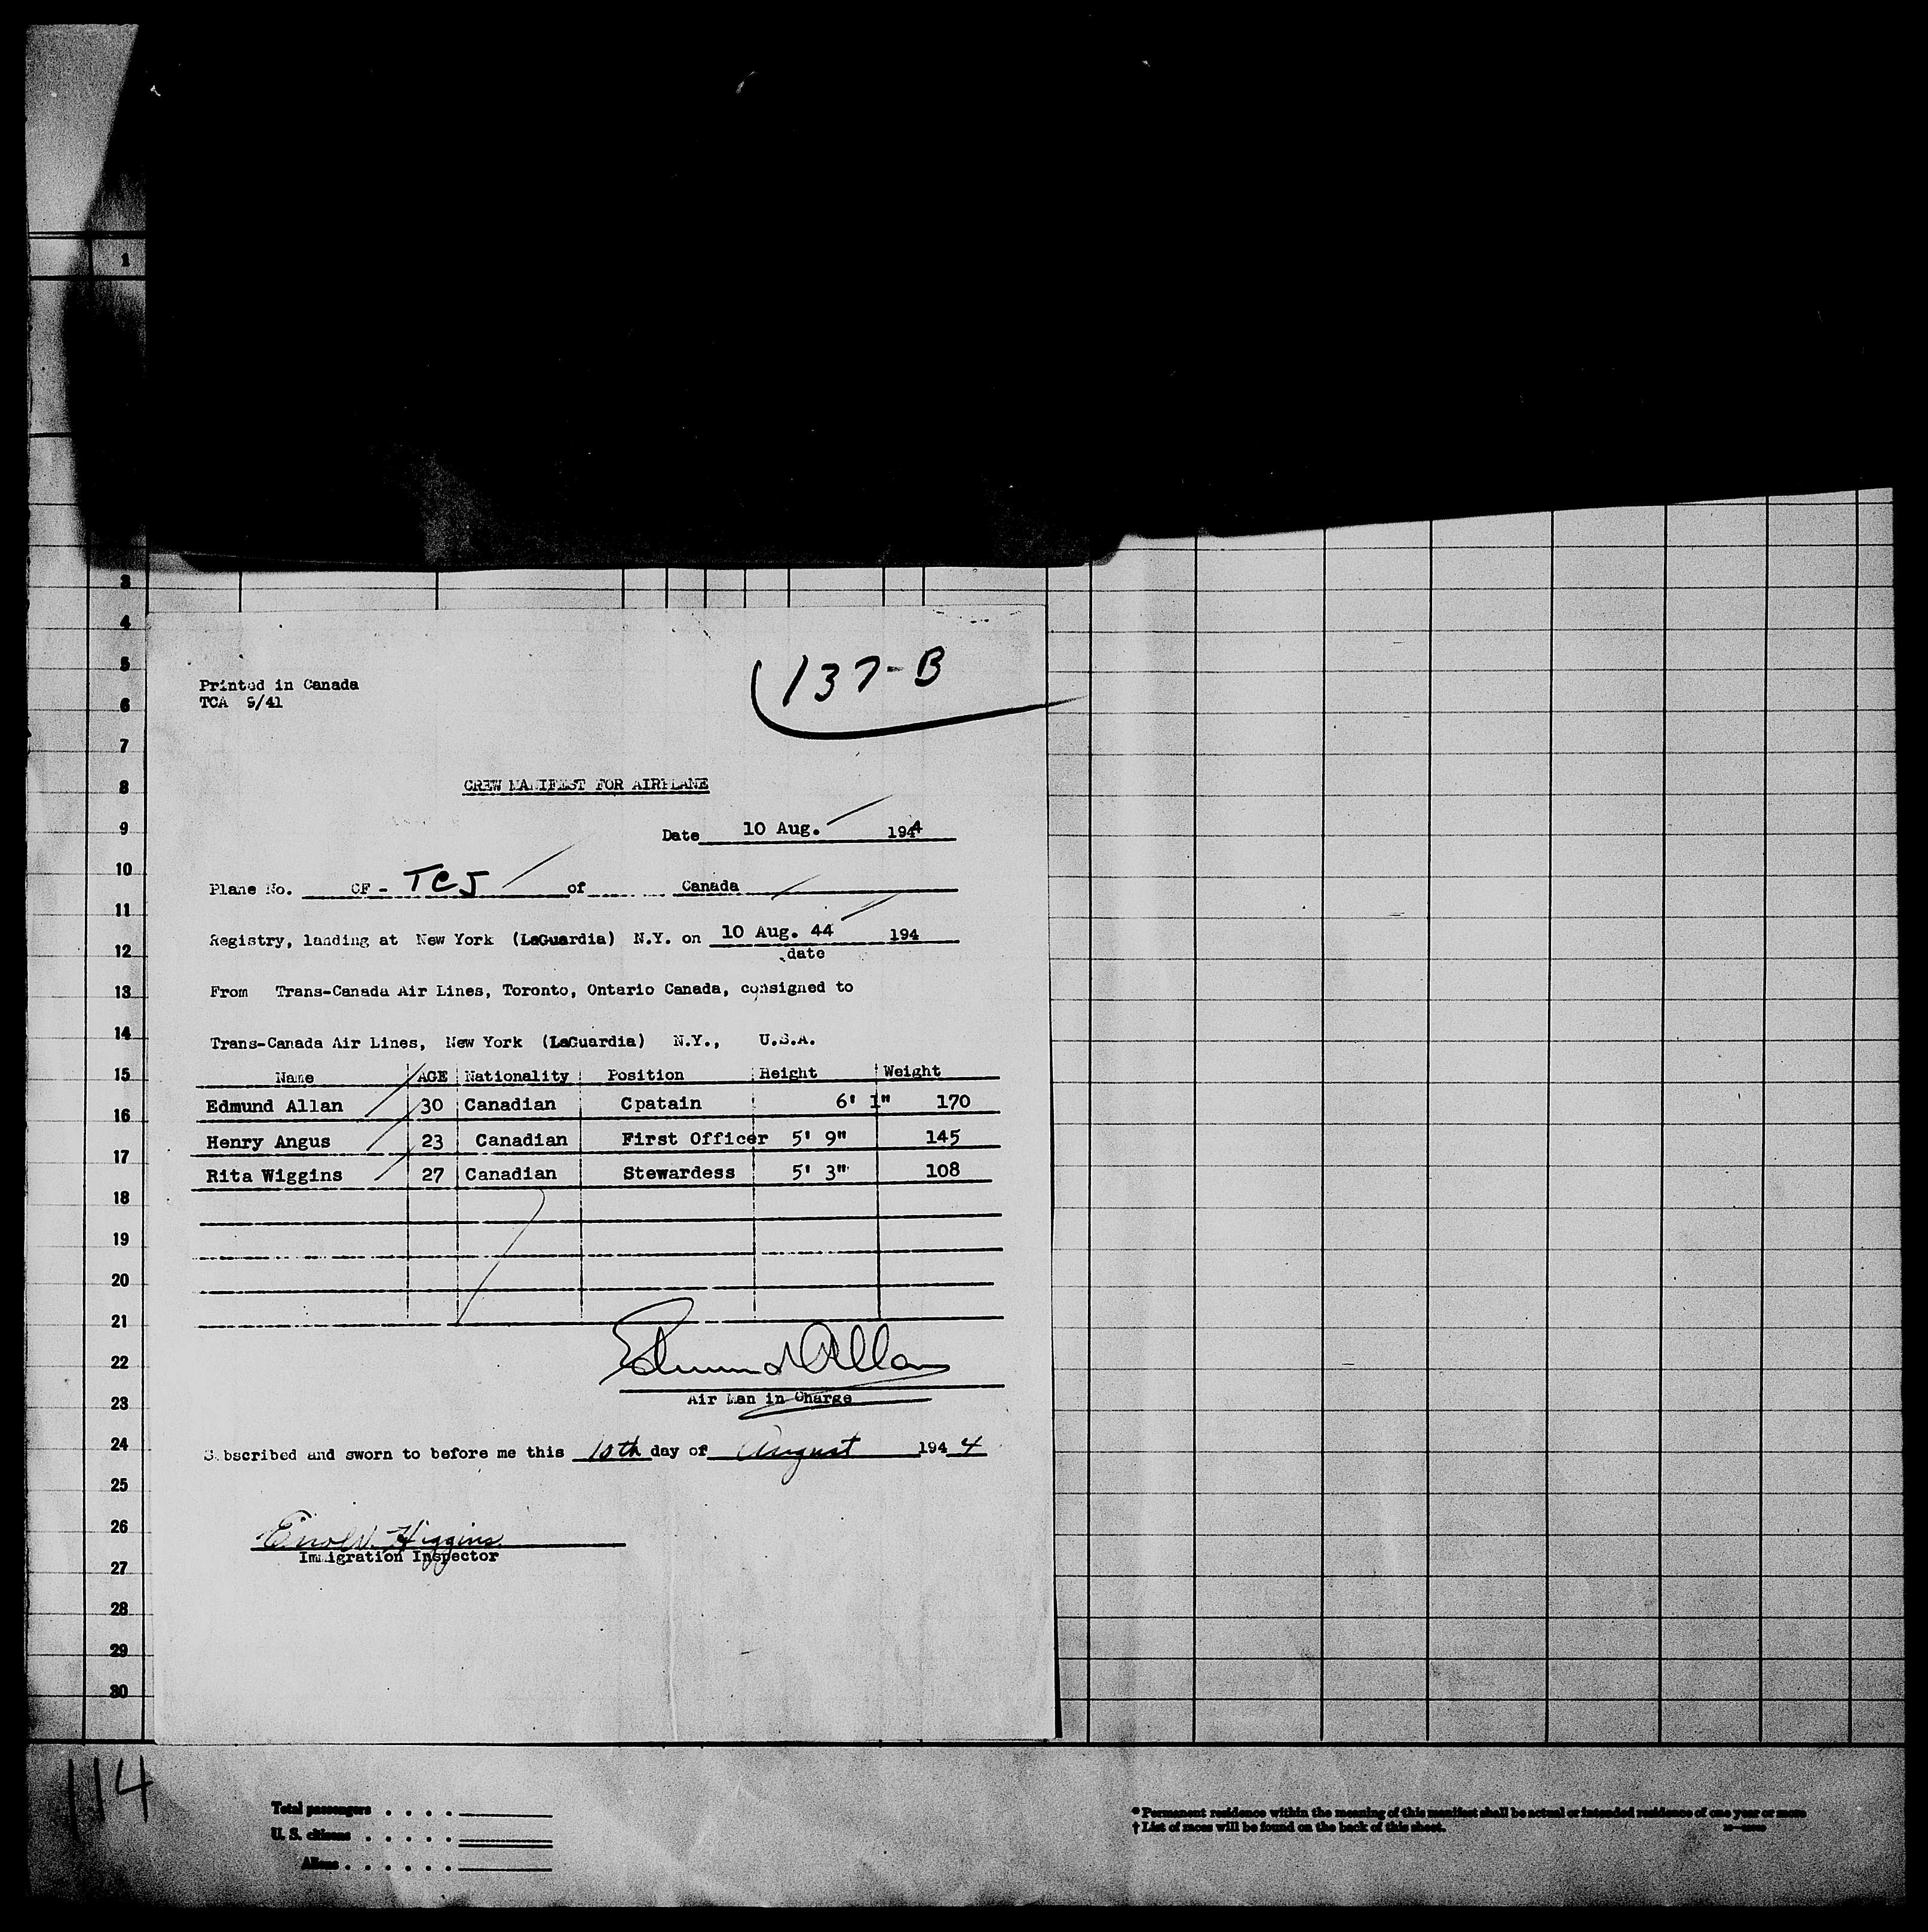 1
3
4
5
6
7
8
9
10
11
12
13
14
15
16
17
18
19
20
21
22
23
24
25
26
27
28
29
30
137-B
Printed in Canada
TCA 9/41
CREW MANIFEST FOR AIRPLANE
Date 10 Aug. 1944
Plane No. CF - TCJ of Canada
Registry, landing at New York (LaGuardia) N.Y. on 10 Aug. 44 194
date
From Trans-Canada Air Lines, Toronto, Ontario Canada, consigned to
Trans-Canada Air Lines, New York (LaGuardia) N.Y., U.S.A.
Name AGE Nationality Position Height Weight
Edmund Allan 30 Canadian Cpatain 6' 1" 170
Henry Angus 23 Canadian First Officer 5' 9" 145
Rita Wiggins 27 Canadian Stewardess 5' 3" 108
Edmund Allan
Air Man in Charge
Subscribed and sworn to before me this 10th day of August 194 4
Higgins
Immigration Inspector
114
Total passengers . . . .
U. S. citizens . . . . .
Aliens . . . . . .
* Permanent residence within the meaning of this manifest shall be actual or intended residence of one year or more
† List of races will be found on the back of this sheet.